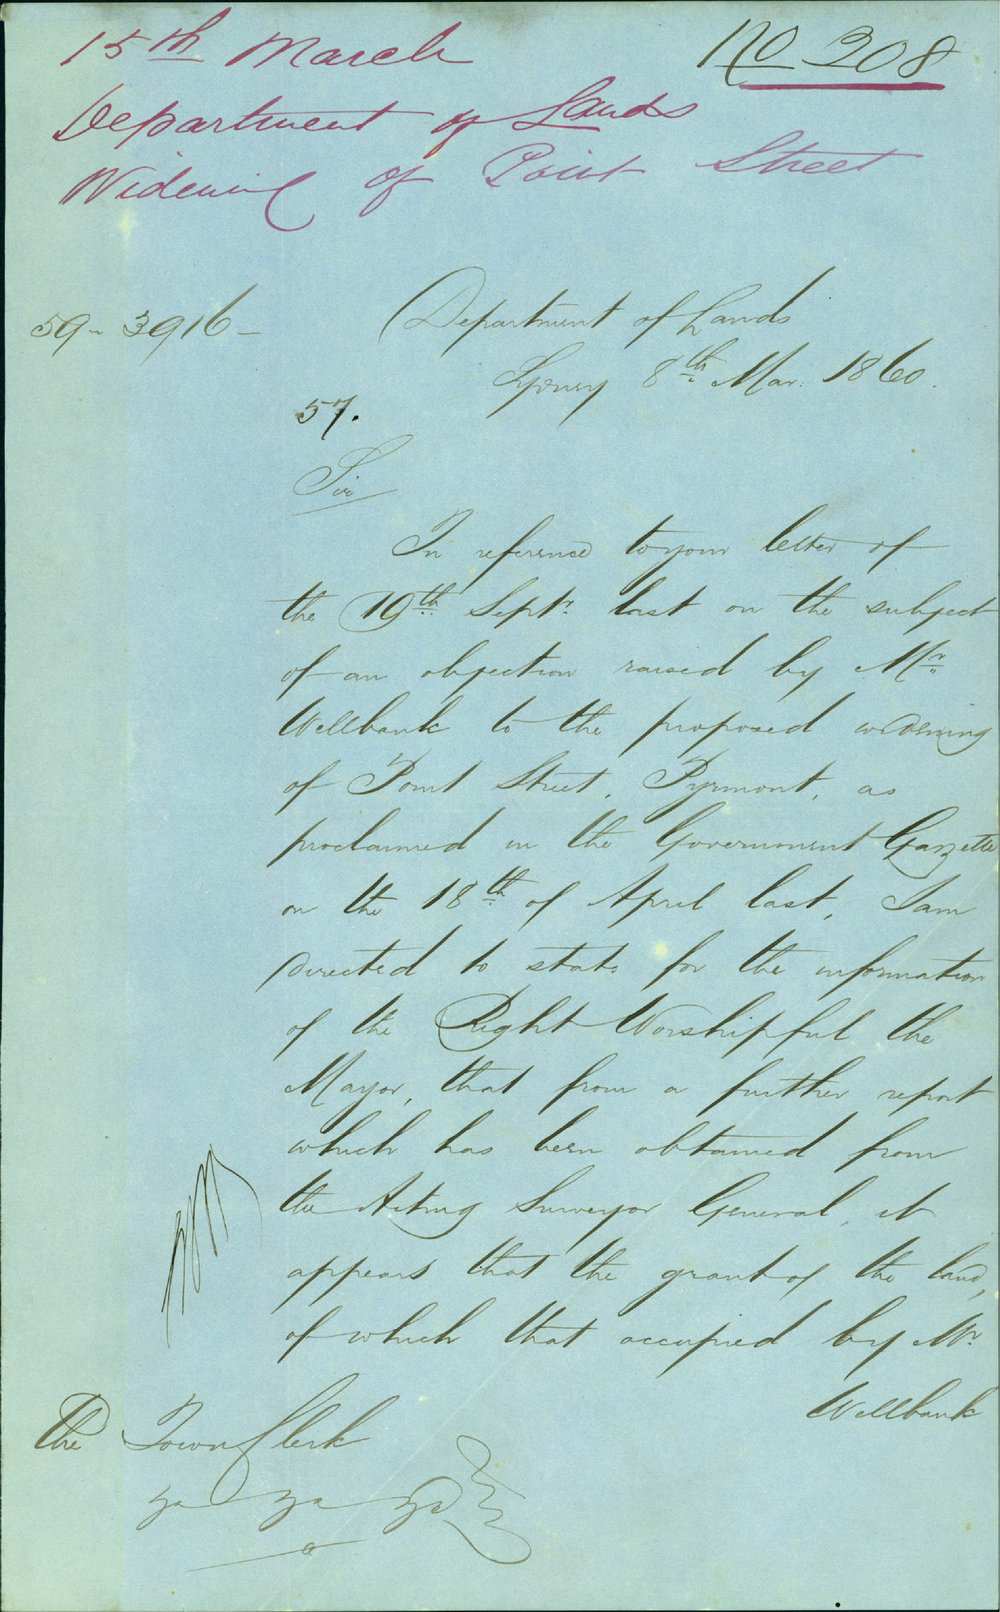 15th March
No 308
Department of Lands
Widening of Point Street
59-3916-
Department of Lands
Sydney 8th Mar. 1860.
57.
Sir
In reference to your letter of
the 19th Septr. last on the subject
of an objection raised by Mr.
Wellbank to the proposed widening
of Point Street, Pyrmont, as
proclaimed in the Government Gazette
on the 18th of April last, I am
directed to state for the information
of the Right Worshipful the
Mayor, that from a further report
which has been obtained from
the Acting Surveyor General, it
appears that the grant of the land,
of which that occupied by Mr.
Wellbank
The Town Clerk